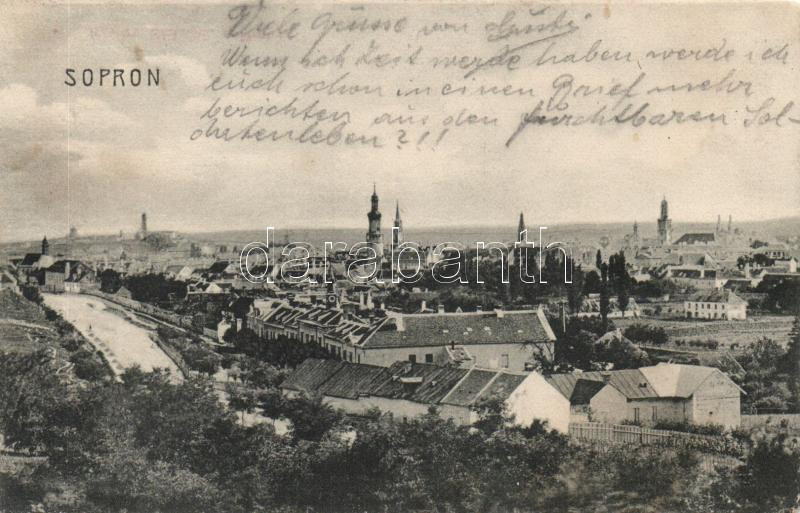 Viele Grüsse von Gusti
Wenn ich Zeit werde haben werde ich
euch schon in einen Brief mehr
berichten aus den furchtbaren Sol-
datenleben?!!
SOPRON
darabanth.com